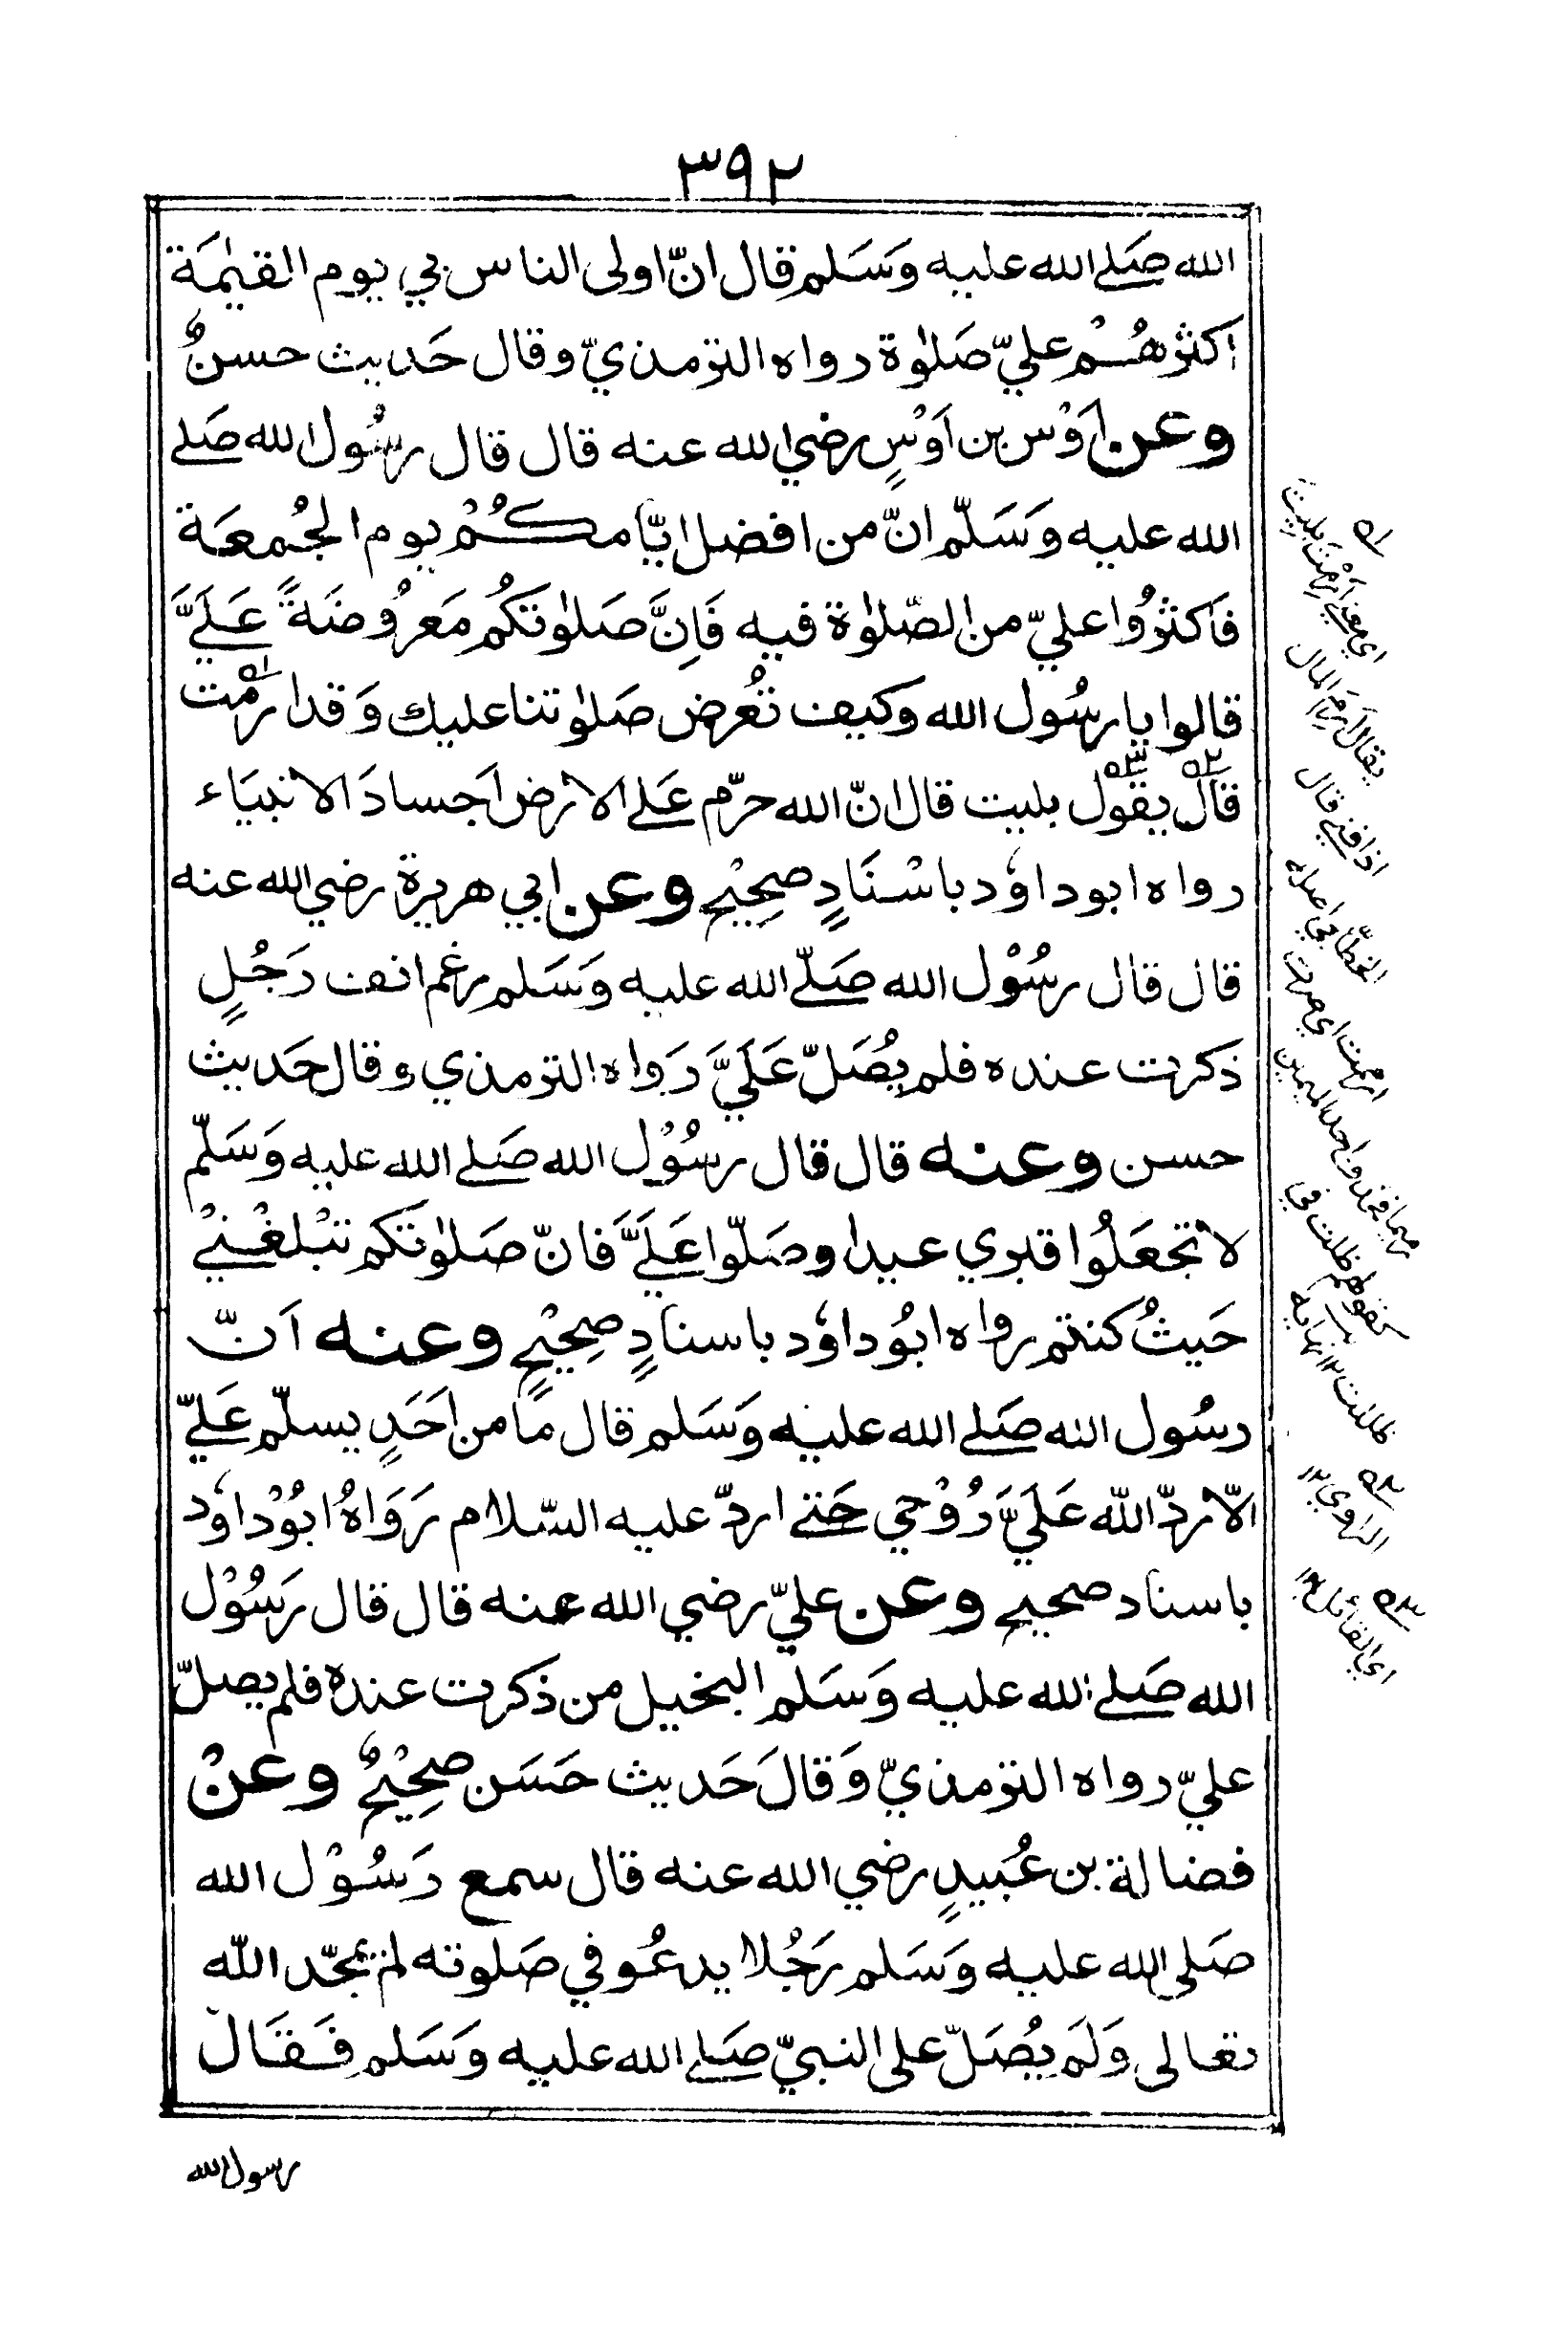 ٣٩٢
الله صَلے الله عليه وَسَلم قال انّ اولى الناس بي يوم القيٰمَة
اكثرهُمْ عليّ صَلوٰة رواه الترمذيّ وقال حَديث حسنٌ
وعن اَوْس بن اَوْسٍ رضي الله عنه قال قال رسُول الله صَلے
الله عليه وَسَلّم انّ من افضل ايّامكُمْ يوم الجُمعَة
فَاكثرُوا عليّ من الصّلوٰة فيه فَاِنَّ صَلوٰتكُم مَعرُوضَةً عَلَيَّ
قالوا يا رسُول الله وكيف تُعرض صَلوٰتنا عليك وَقد ارمْت
قال يقول بليت قال انّ الله حرّم عَلے الارض اَجسادَ الانبيَاء
رواه ابو داوٗد باسْنَادٍ صحِيْح وعن ابي هريرة رضي الله عنه
قال قال رسُوْل الله صَلّے الله عليه وَسَلم رغم انف رَجُلٍ
ذكرت عنده فلم يُصَلّ عَلَيَّ رَواه الترمذي وقال حَديث
حسن وعنه قال قال رسُوْل الله صَلے الله عليه وَسَلّم
لا تجعَلُوا قبري عيدا وصَلّوا عَلَيَّ فَانّ صَلوٰتَكم تبْلغْنيْ
حَيثُ كنتم رواه ابُو داوٗد باسنادٍ صِحِيْحٍ وعنه اَنّ
رسُول الله صَلے الله عليه وَسَلم قال مَا من اَحَدٍ يسلّم عَليّ
الّا ردّ اللّٰه عَلَيَّ رُوْحي حَتے اردّ عليه السّلام رَوَاهُ ابُوْ داوٗد
باسناد صحيح وعن عليّ رضي الله عنه قال قال رَسُوْل
الله صَلے الله عليه وَسَلم البخيل من ذكرت عنده فلم يصلّ
عليّ رواه الترمذيّ وَقالَ حَديث حَسَن صحِيْحٌ وعنْ
فضالة بن عُبَيدٍ رضي الله عنه قال سمع رَسُوْل الله
صَلى الله عليه وَسَلم رَجُلا يدعُو في صَلوته لم يمجّد اللّٰه
تعالى وَلَم يُصَلّ على النبيّ صَلے الله عليه وَسَلم فَقَال
رسول الله
٥١
اي معنى اَرَمْتَ بليت
يقال اَرِمَ المال
اذا فني قال
الخطّابي اصله
ارممت اي صرت
رميما فحذف احد الميمين
كقولهم ظلت في
ظللت ١٢ نهايه
٥٢
الراوي ١٢
٥٣
اي القائل ١٢